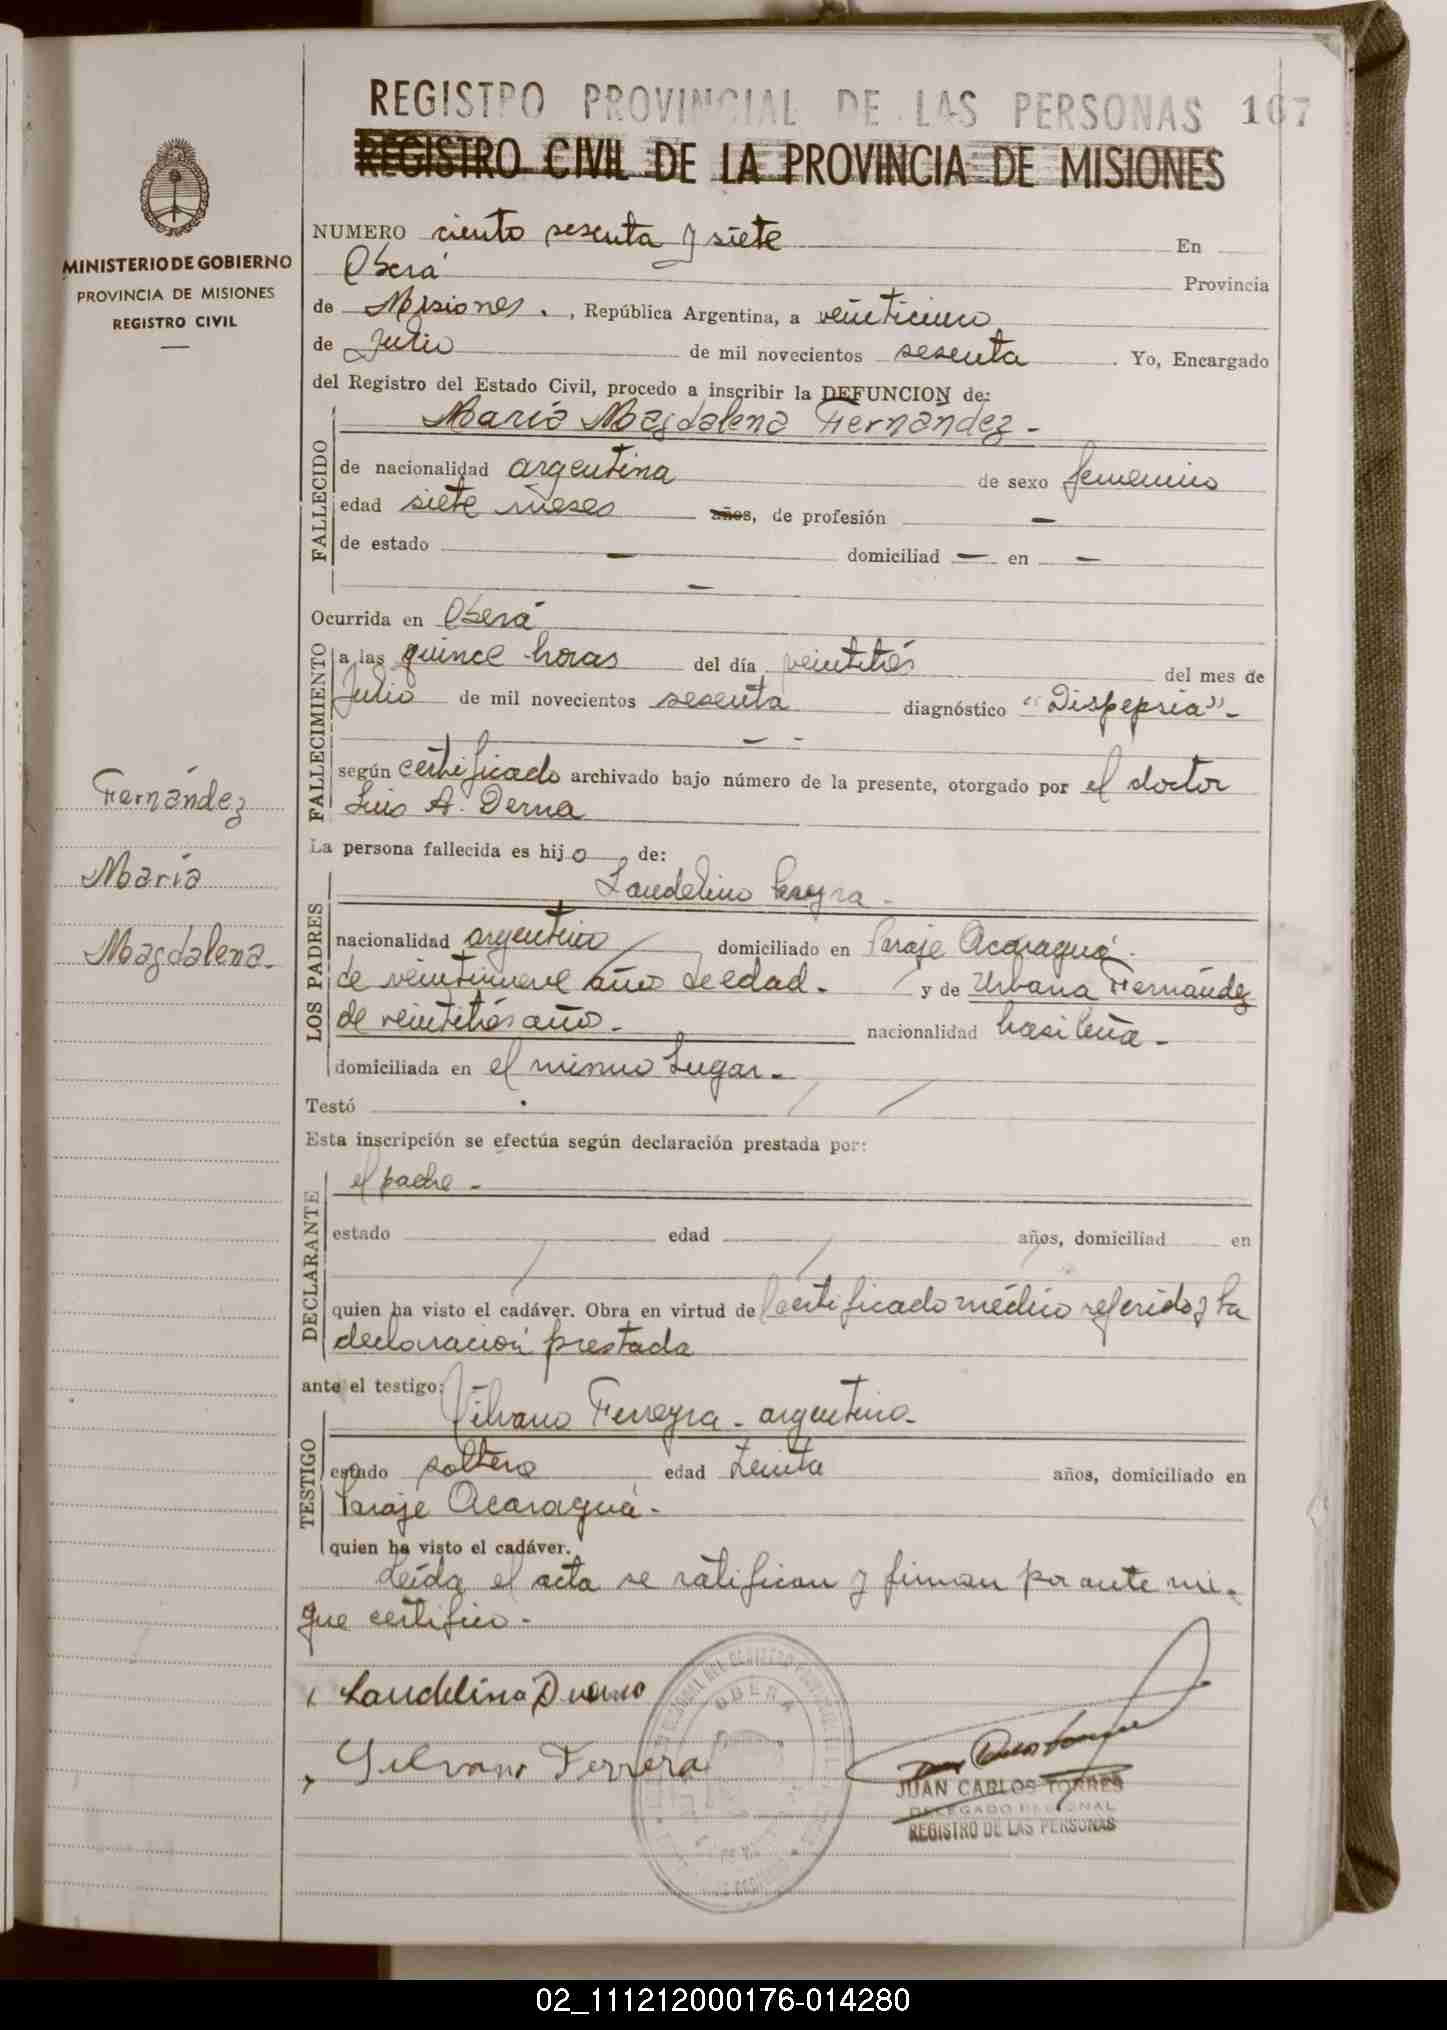 REGISTRO PROVINCIAL DE LAS PERSONAS 167
REGISTRO CIVIL DE LA PROVINCIA DE MISIONES
MINISTERIO DE GOBIERNO
PROVINCIA DE MISIONES
REGISTRO CIVIL
NUMERO ciento sesenta y siete En
Oberá Provincia
de Misiones. , República Argentina, a veinticinco
de Julio de mil novecientos sesenta. Yo, Encargado
del Registro del Estado Civil, procedo a inscribir la DEFUNCION de:
María Magdalena Fernández -
FALLECIDO
de nacionalidad argentina de sexo femenino
edad siete meses años, de profesión —
de estado — domiciliad — en —
—
Ocurrida en Oberá
FALLECIMIENTO
a las quince horas del día veintitrés del mes de
Julio de mil novecientos sesenta diagnóstico "Dispepsia" -
según certificado archivado bajo número de la presente, otorgado por el doctor
Luis A. Derna
La persona fallecida es hijo de:
Fernández
María
Magdalena -
LOS PADRES
Laudelino
nacionalidad argentino domiciliado en Paraje Acaraguá.
de veintinueve años de edad. y de Urbana Fernández
de veintitrés años. nacionalidad brasileña -
domiciliada en el mismo lugar -
Testó
Esta inscripción se efectúa según declaración prestada por:
DECLARANTE
el padre -
estado edad años, domiciliad en
quien ha visto el cadáver. Obra en virtud de certificado médico referido y la
declaración prestada
ante el testigo:
TESTIGO
Silvano Ferreyra - argentino -
estado soltero edad treinta años, domiciliado en
Paraje Acaraguá -
quien ha visto el cadáver.
Leída el acta se ratifican y firman por ante mi -
que certifico -
Laudelino
Silvano Ferrera
OBERA
JUAN CARLOS TORRES
DELEGADO REGIONAL
REGISTRO DE LAS PERSONAS
02_111212000176-014280